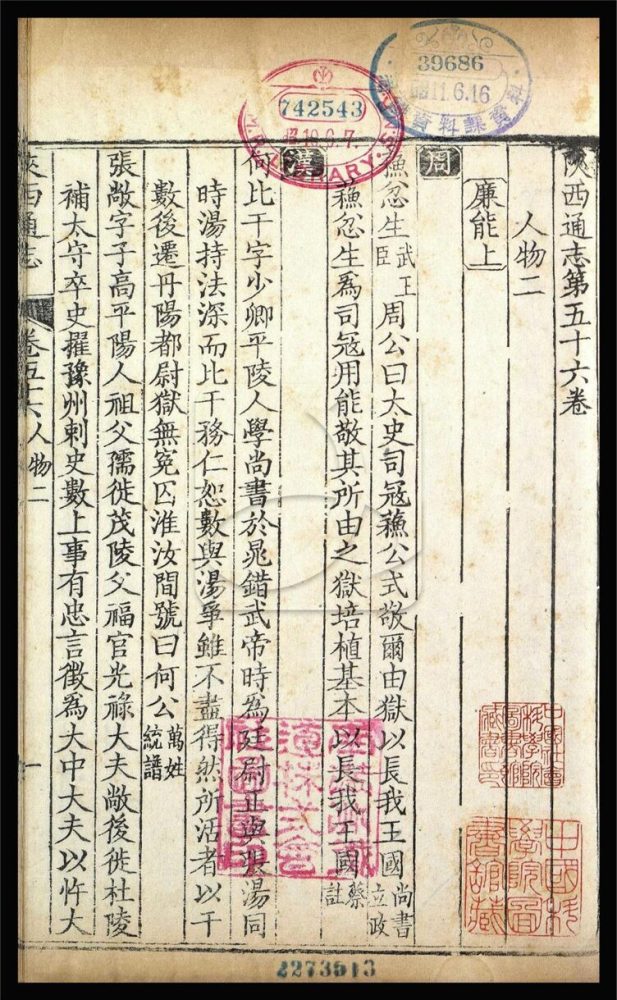 39686
11.6.16
資料課
742543
LIBRARY
陝西通志第五十六卷
人物二
廉能上
周
蘓忿生武王臣周公曰太史司寇蘓公式敬爾由獄以長我王國尚書立政
蘓忿生爲司寇用能敬其所由之獄培植基本以長我王國蔡註
漢
何比干字少卿平陵人學尚書於晁錯武帝時爲廷尉正與張湯同
時湯持法深而比干務仁恕數與湯爭雖不盡得然所活者以千
數後遷丹陽都尉獄無冤囚淮汝間號曰何公萬姓統譜
張敞字子高平陽人祖父孺徙茂陵父福官光祿大夫敞後徙杜陵
補太守卒史擢豫州刺史數上事有忠言徵爲大中大夫以忤大
陝西通志 卷五十六人物二 一
中國科學院圖書館藏
2273513